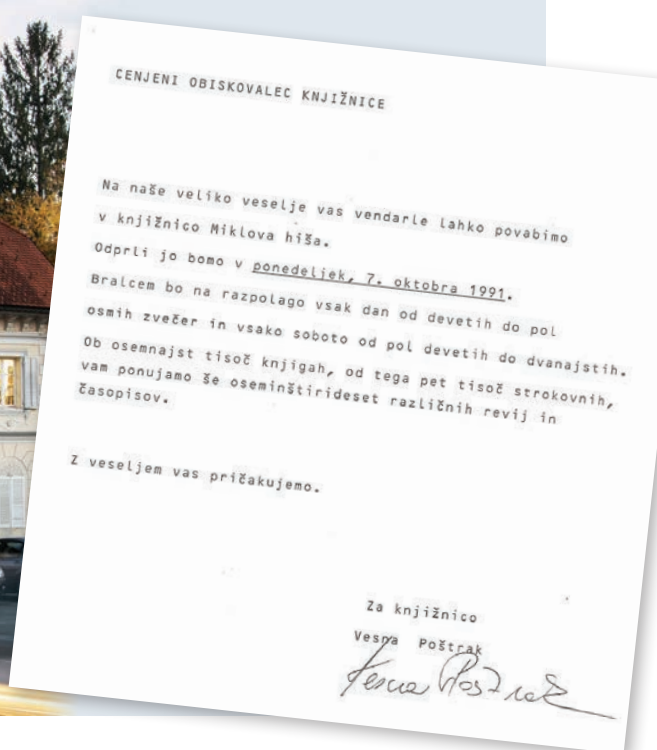 CENJENI OBISKOVALEC KNJIŽNICE
Na naše veliko veselje vas vendarle lahko povabimo
v knjižnico Miklova hiša.
Odprli jo bomo v ponedeljek, 7. oktobra 1991.
Bralcem bo na razpolago vsak dan od devetih do pol
osmih zvečer in vsako soboto od pol devetih do dvanajstih.
Ob osemnajst tisoč knjigah, od tega pet tisoč strokovnih,
vam ponujamo še oseminštirideset različnih revij in
časopisov.
Z veseljem vas pričakujemo.
Za knjižnico
Vesna Poštrak
Vesna Poštrak